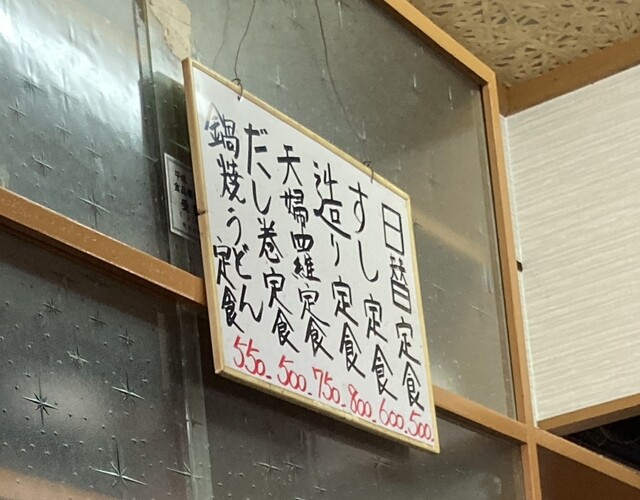 日替定食 500.
すし定食 600.
造り定食 800.
天婦四維定食 750.
だし巻定食 500.
鍋焼うどん定食 550.